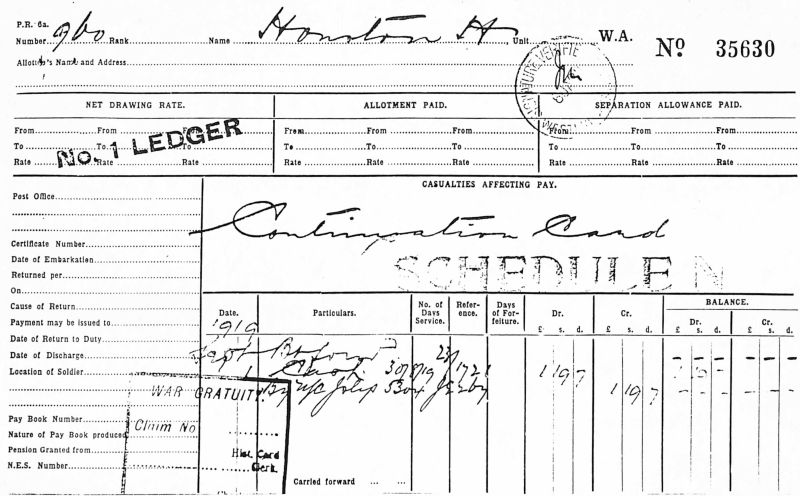 P.R. 6a.
Number 960 Rank Name Houston H Unit W.A. No 35630
Allottee's Name and Address
SIGNATURE VERIFIE
WEST
NET DRAWING RATE. ALLOTMENT PAID. SEPARATION ALLOWANCE PAID.
From From From From From From From From From
To To To To To To To To To
Rate Rate Rate Rate Rate Rate Rate Rate Rate
No. 1 LEDGER
CASUALTIES AFFECTING PAY.
Post Office
Continuation Card
Certificate Number
Date of Embarkation
SCHEDULE N
Returned per
On
Cause of Return
Payment may be issued to
Date of Return to Duty
Date of Discharge
Location of Soldier
Date. Particulars. No. of Days Service. Reference. Days of Forfeiture. Dr. Cr. BALANCE.
Dr. Cr.
£ s. d. £ s. d. £ s. d. £ s. d.
1919
Sept
1 19 7
By 1 19 7
WAR GRATUITY
Claim No
Pay Book Number
Nature of Pay Book produced
Pension Granted from
Hist. Card
N.E.S. Number
Clerk
Carried forward